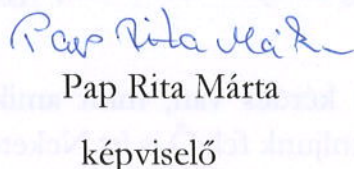 Pap Rita Márta
Pap Rita Márta
képviselő